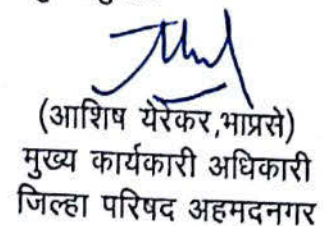 (आशिष येरेकर,भाप्रसे)
मुख्य कार्यकारी अधिकारी
जिल्हा परिषद अहमदनगर